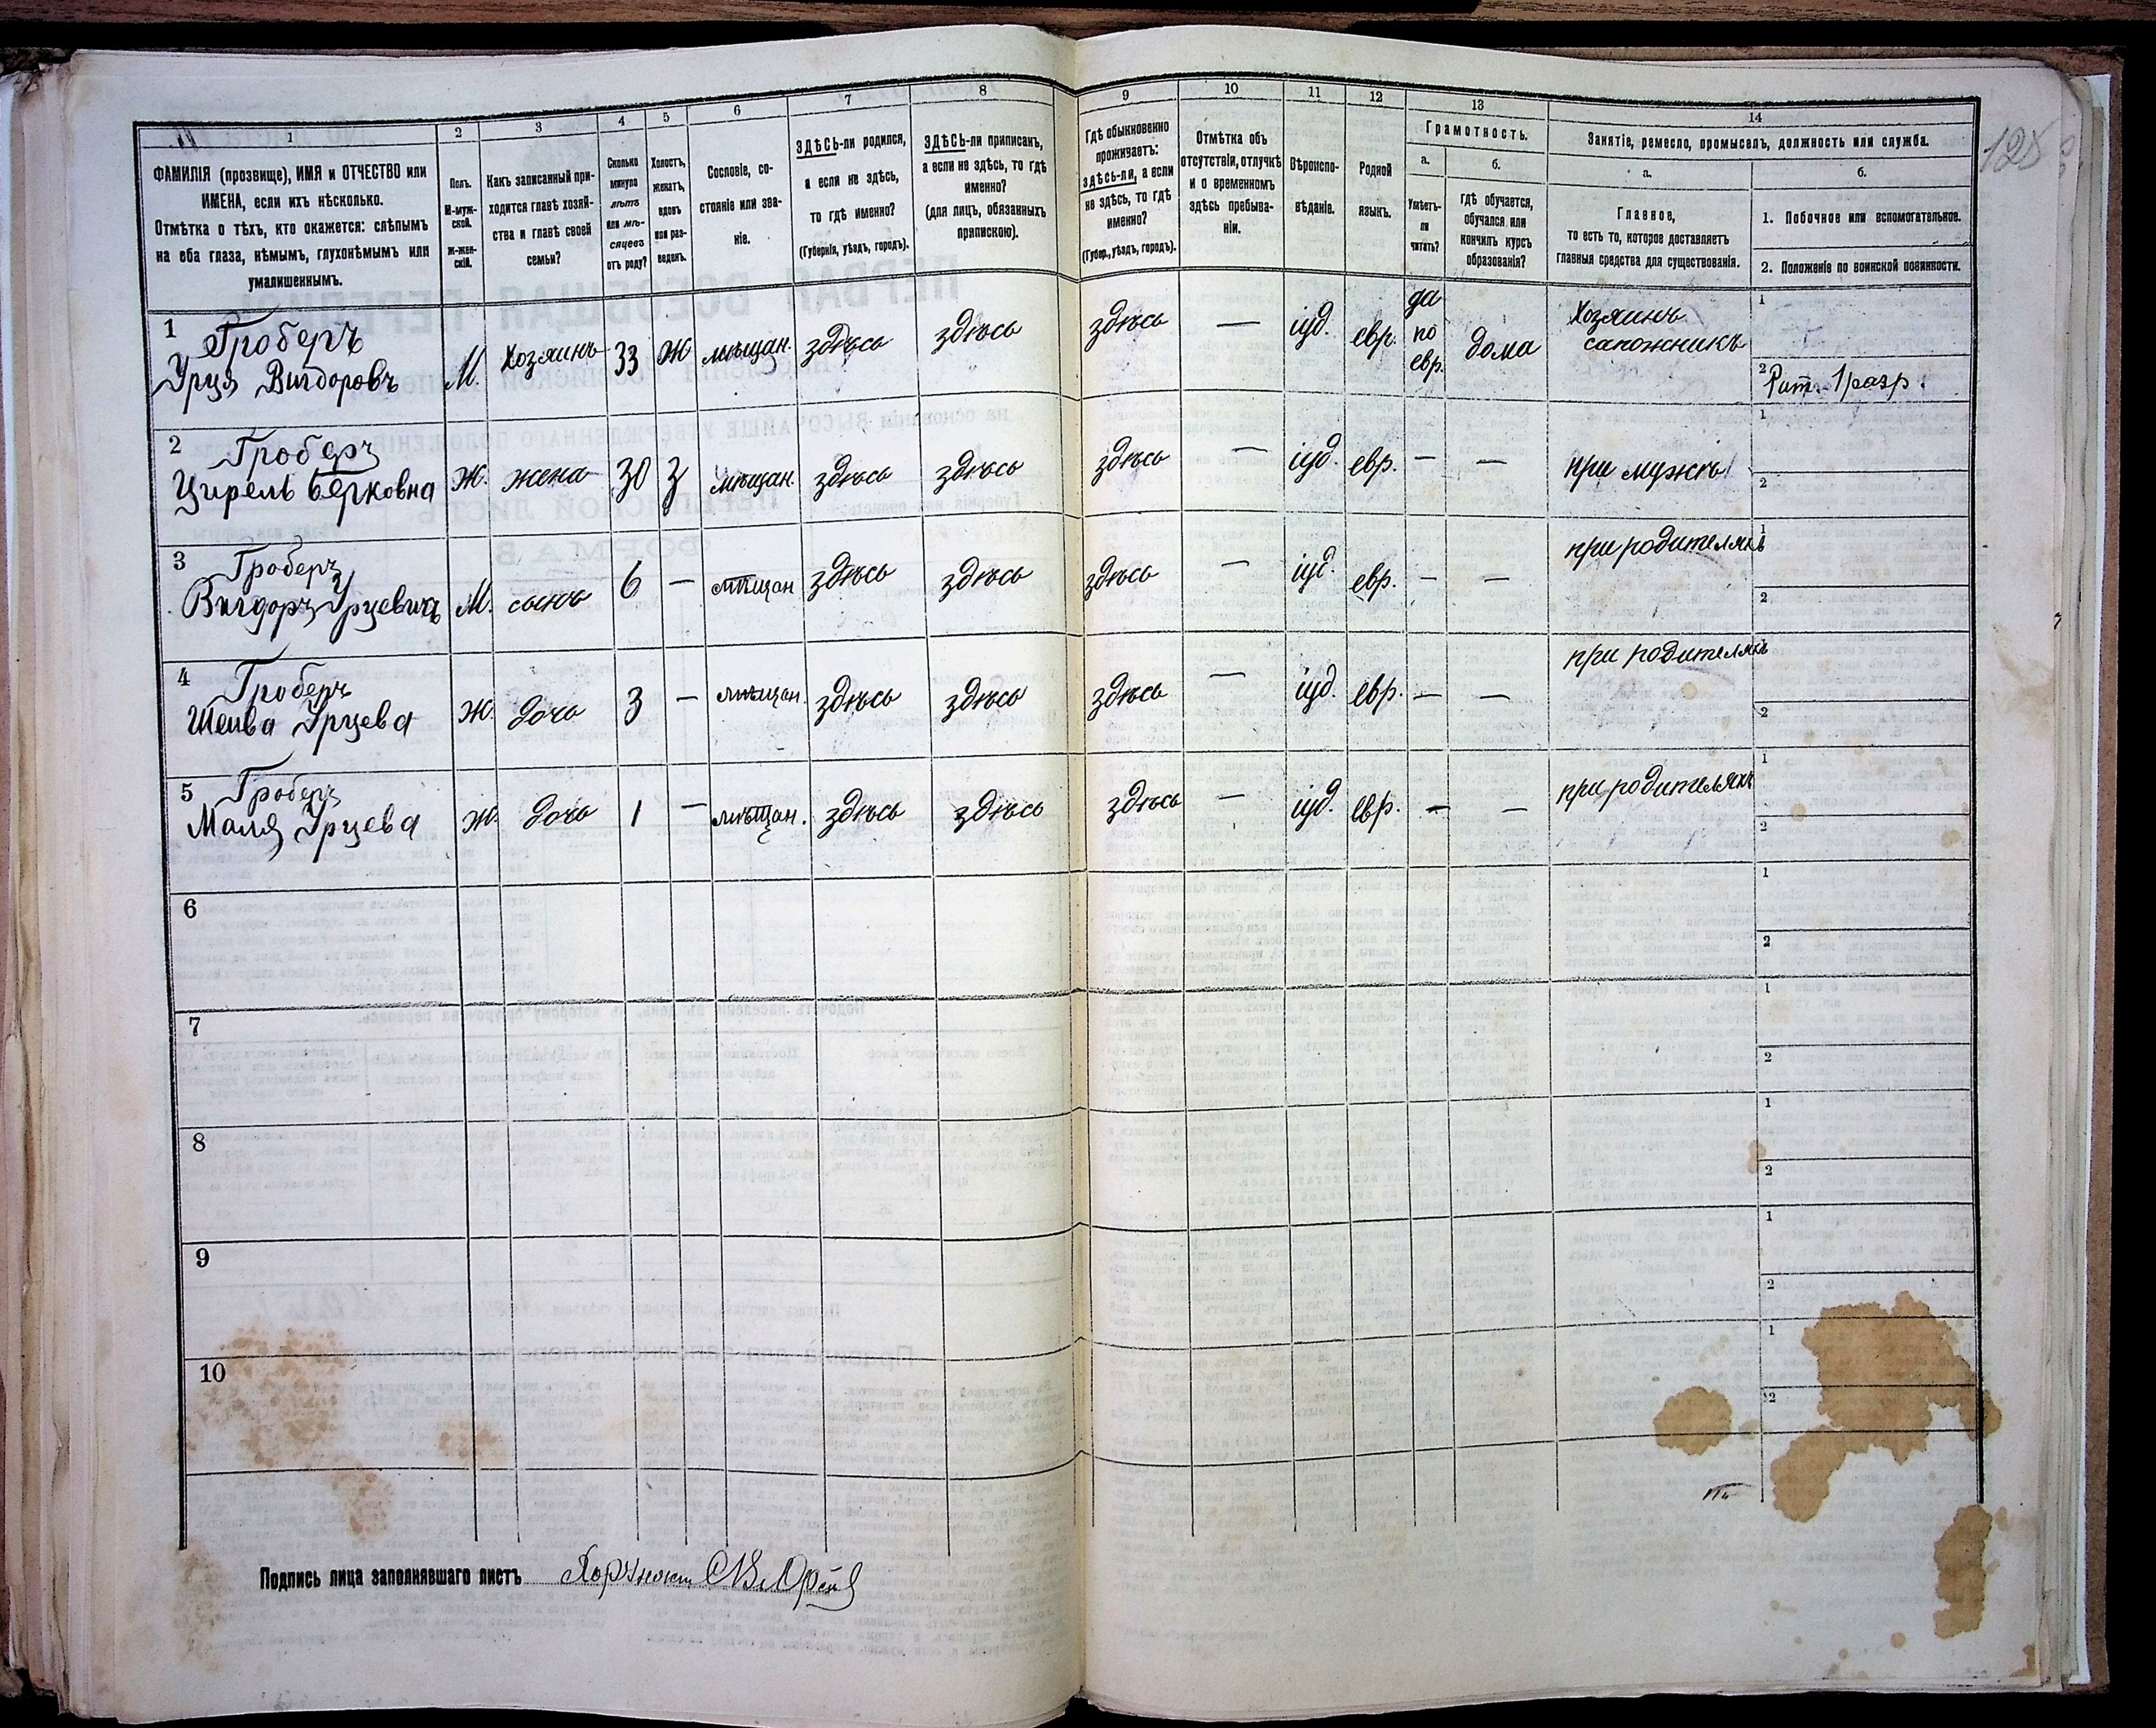 1
2
3
4
5
6
7
8
9
10
11
12
13
14
ФАМИЛІЯ (прозвище), ИМЯ и ОТЧЕСТВО или
ИМЕНА, если ихъ нѣсколько.
Отмѣтка о тѣхъ, кто окажется: слѣпымъ
на оба глаза, нѣмымъ, глухонѣмымъ или
умалишеннымъ.
Полъ.
М-муж-
ской.
Ж-жен-
скій.
Какъ записанный при-
ходится главѣ хозяй-
ства и главѣ своей
семьи?
Сколько
минуло
лѣтъ
или мѣ-
сяцевъ
отъ роду?
Холостъ,
женатъ,
вдовъ
или раз-
веденъ.
Сословіе, со-
стояніе или зва-
ніе.
ЗДѢСЬ-ли родился,
а если не здѣсь,
то гдѣ именно?
(Губернія, уѣздъ, городъ).
ЗДѢСЬ-ли приписанъ,
а если не здѣсь, то гдѣ
именно?
(для лицъ, обязанныхъ
припискою).
Гдѣ обыкновенно
проживаетъ:
здѣсь-ли, а если
не здѣсь, то гдѣ
именно?
(Губер., уѣздъ, городъ).
Отмѣтка объ
отсутствіи, отлучкѣ
и о временномъ
здѣсь пребыва-
ніи.
Вѣроиспо-
вѣданіе.
Родной
языкъ.
Грамотность.
а.
Умѣетъ-
ли
читать?
б.
гдѣ обучается,
обучался или
кончилъ курсъ
образованія?
Занятіе, ремесло, промыселъ, должность или служба.
а.
Главное,
то есть то, которое доставляетъ
главныя средства для существованія.
б.
1. Побочное или вспомогательное.
2. Положеніе по воинской повинности.
125
1 Гроберъ
Урця Вигдоровъ М. Хозяинъ 33 Ж мѣщан. здѣсь здѣсь здѣсь — іуд. евр. да по евр. дома Хозяинъ сапожникъ
1
2 Рат. 1 разр.
2 Гроберъ
Цирель Берковна Ж. жена 30 З мѣщан. здѣсь здѣсь здѣсь — іуд. евр. — — при мужѣ
1
2
3 Гроберъ
Вигдоръ Урцевичъ М. сынъ 6 — мѣщан здѣсь здѣсь здѣсь — іуд. евр. — — при родителяхъ
1
2
4 Гроберъ
Шейва Урцева Ж. дочь 3 — мѣщан. здѣсь здѣсь здѣсь — іуд. евр. — — при родителяхъ
1
2
5 Гроберъ
Маля Урцева Ж. дочь 1 — мѣщан. здѣсь здѣсь здѣсь — іуд. евр. — — при родителяхъ
1
2
6
1
2
7
1
2
8
1
2
9
1
2
10
1
2
Подпись лица заполнявшаго листъ